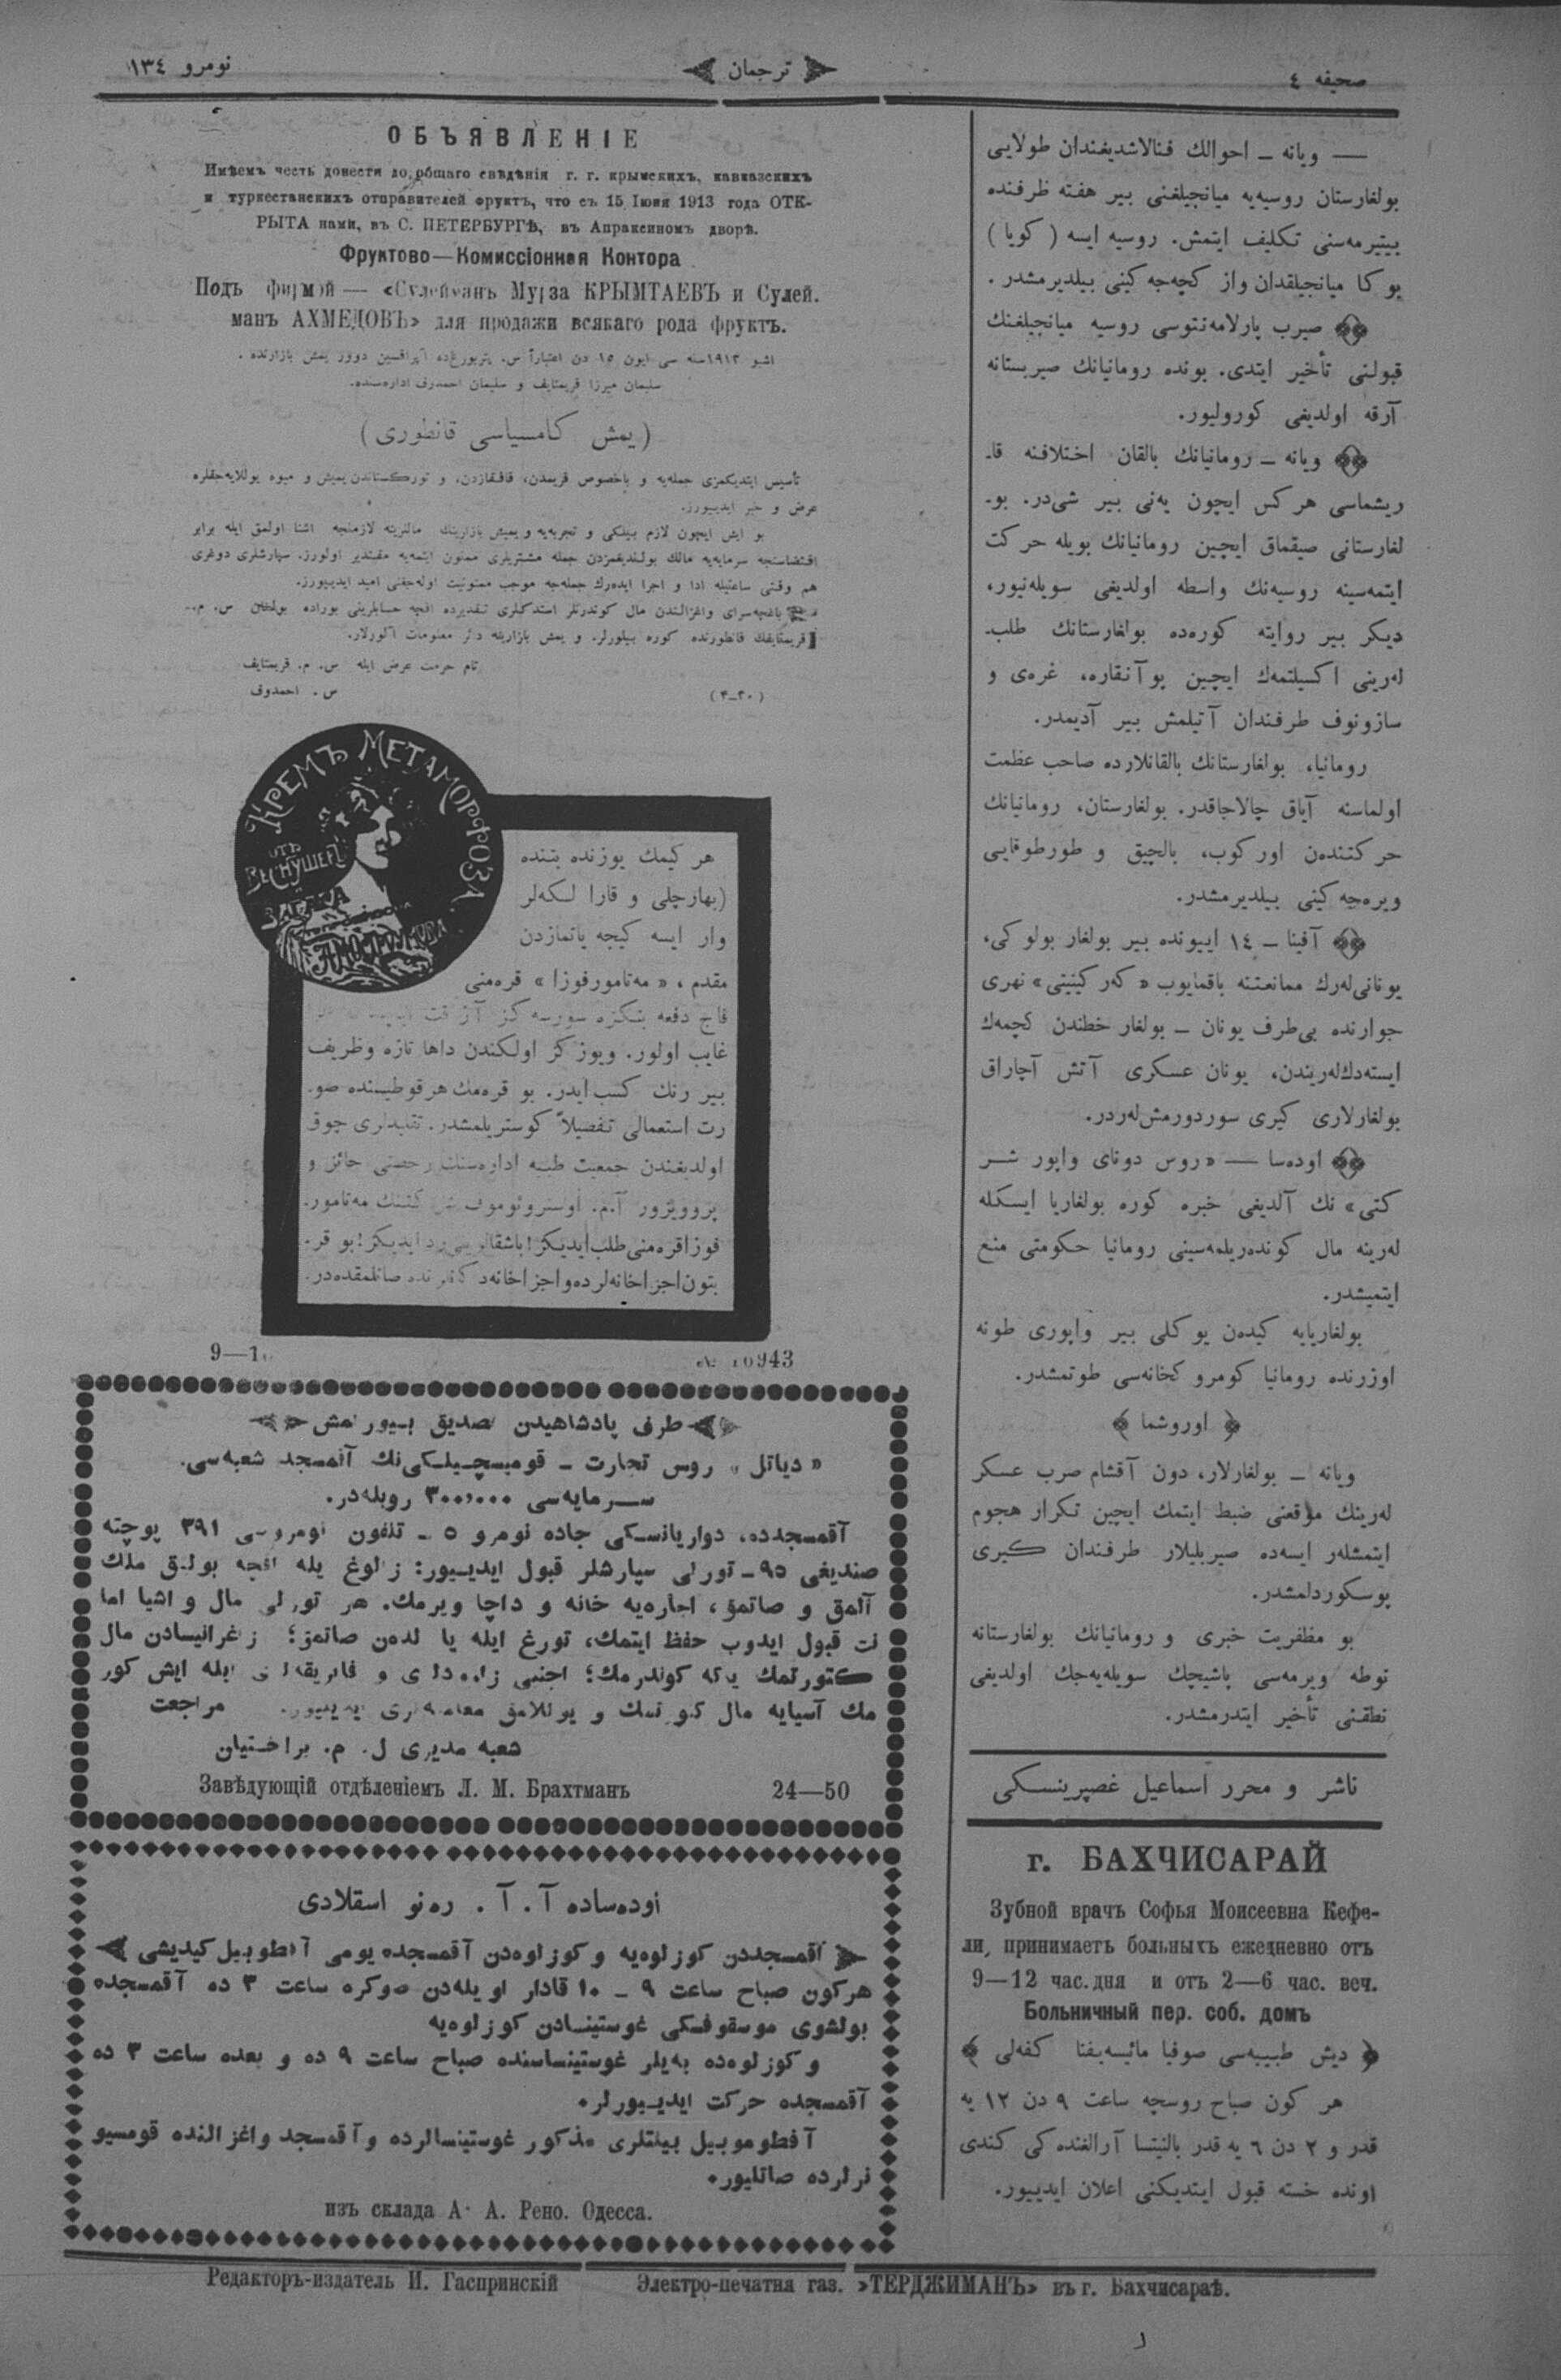 صحیفه ٤
ترجمان
نومرو ١٣٤
— ویانه ـ احوالك فنالاشدیغندان طولایی
بولغارستان روسیه‌یه میانجیلغنی بیر هفته ظرفنده
بیتیرمه‌سنی تكلیف ایتمش. روسیه ایسه ( كویا )
بو كا میانجیلقدان واز كچه‌جه كینی بیلدیرمشدر.
صیرب پارلامه‌نتوسی روسیه میانجیلغنك
قبولنی تأخیر ایتدی. بونده رومانیانك صیربستانه
آرقه اولدیغی كورولیور.
ویانه ـ رومانیانك بالقان اختلافنه قا-
ریشماسی هر كس ایچون یه‌نی بیر شی‌در. بو-
لغارستانی صیقماق ایچین رومانیانك بویله حركت
ایتمه‌سینه روسیه‌نك واسطه اولدیغی سویله‌نیور،
دیكر بیر روایته كوره‌ده بولغارستانك طلب-
له‌رینی اكسیلتمه‌ك ایچین بو آنقاره، غره‌ی و
سازونوف طرفندان آتیلمش بیر آدیمدر.
رومانیا، بولغارستانك بالقانلارده صاحب عظمت
اولماسنه آیاق چالاجاقدر. بولغارستان، رومانیانك
حركتنده‌ن اوركوب، بالچیق و طورطوقایی
ویره‌جه كینی بیلدیرمشدر.
آفینا ـ ١٤ اییونده بیر بولغار بولوكی،
یونانی‌له‌رك ممانعتنه باقمایوب «كه‌ر كینیتی» نهری
جوارنده بی‌طرف یونان ـ بولغار خطندن كچمه‌ك
ایسته‌دك‌له‌ریندن، یونان عسكری آتش آچاراق
بولغارلاری كیری سوردورمش‌له‌ردر.
اوده‌سا — «روس دونای واپور شر
كتی» نك آلدیغی خبره كوره بولغاریا ایسكله
له‌رینه مال كونده‌ریلمه‌سینی رومانیا حكومتی منع
ایتمیشدر.
بولغاریایه كیده‌ن یوكلی بیر واپوری طونه
اوزرنده رومانیا كومروكخانه‌سی طوتمشدر.
﴿ اوروشما ﴾
ویانه ـ بولغارلار، دون آقشام صرب عسكر
له‌رینك موقعنی ضبط ایتمك ایچین تكرار هجوم
ایتمشلەر ایسه‌ده صیربلیلار طرفندان كیری
پوسكوردلمشدر.
بو مظفریت خبری و رومانیانك بولغارستانه
نوطه ویرمه‌سی پاشیچك سویله‌یه‌جك اولدیغی
نطقنی تأخیر ایتدرمشدر.
ناشر و محرر اسماعیل غصپرینسكی
г. БАХЧИСАРАЙ
Зубной врачъ Софья Моисеевна Кефе-
ли, принимаетъ больныхъ ежедневно отъ
9—12 час. дня и отъ 2—6 час. веч.
Больничный пер. соб. домъ
﴿ دیش طبیبه‌سی صوفیا مائیسه‌یفنا كفه‌لی ﴾
هر كون صباح روسچه ساعت ٩ دن ١٢ یه
قدر و ٢ دن ٦ یه قدر بالنیتسا آرالغنده كی كندی
اونده خسته قبول ایتدیكنی اعلان ایدییور.
ОБЪЯВЛЕНІЕ
Имѣемъ честь довести до общаго свѣдѣнія г. г. крымскихъ, кавказскихъ
и туркестанскихъ отправителей фруктъ, что съ 15 Іюня 1913 года ОТК-
РЫТА нами, въ С. ПЕТЕРБУРГѢ, въ Апраксинномъ дворѣ.
Фруктово—Комиссіонная Контора
Подъ фирмой — «Сулейманъ Мурза КРЫМТАЕВЪ и Сулей.
манъ АХМЕДОВЪ» для продажи всякаго рода фруктъ.
اشبو ١٩١٣ سنه سی ایون ١٥ دن اعتباراً س. پتربورغ‌ده آپراقسین دوور یمش بازارنده.
سلیمان میرزا قریمتایف و سلیمان احمدوف اداره‌سنده.
(یمش كامسیاسی قانطوری)
تأسیس ایتدیكمزی جمله‌یه و باخصوص قریمدن، قافقازدن، و توركستاندن یمیش و میوه یوللایه‌جقلره
عرض و خبر ایدییورز.
بو ایش ایچون لازم بیلكی و تجربه‌یه و یمیش بازارینك مالنریته لازمنجه اشنا اولمق ایله برابر
اقتضاسنجه سرمایه‌یه مالك بولندیغمزدن جمله مشتریلری ممنون ایتمه‌یه مقتدیر اولورز. سپارشلری دوغری
هم وقتی ساعتیله ادا و اجرا ایده‌رك جمله‌جه موجب ممنونیت اوله‌جغنی امید ایدییورز.
باغچه‌سرای واغزالندن مال كوندرنلر استدكلری تقدیرده اقچه حسابلرینی بوراده س. م.
قریمتایفك قانطورنده كوره بیلورلر. و یمش بازارینه دائر معلومات آلورلار.
تام حرمت عرض ایله س. م. قریمتایف
س. احمدوف
(٢٠-٤)
КРЕМЪ МЕТАМОРФОЗА
ОТЪ
ВЕСНУШЕКЪ
ЗАГАРА
هر كیمك یوزنده یتنده
(بهارچلی و قارا لكه‌لر
وار ایسه كیجه یاتمازدن
مقدم، «مه‌تامورفوزا» قره‌منی
قاچ دفعه بتكزه سورسه كز آز
غایب اولور. ویوز كز اولكندن داها تازه وظریف
بیر رنك كسب ایدر. بو قره‌مك هر قوطیسنده صو-
رت استعمالی تفصیلاً كوستریلمشدر. تقلیدلری چوق
اولدیغندن جمعیت طبیه اداره‌سنك رخصتی حائز و
پروویزور آ.م. اوستروئوموف مه‌تامور-
فوزا قره‌منی طلب ایدیكز! باشقالرینی رد ایدیكز! بو قر-
بتون اجزاخانه‌لرده و اجزاخانه صاتلمقده‌در.
9—1
10943
طرفی پادشاهیدن تصدیق بیورلمش
«دیاتل» روس تجارت ـ قومیسچیلكی‌نك آقمسجد شعبه‌سی.
سرمایه‌سی ٣٠٠،٠٠٠ روبله‌در.
آقمسجدده، دواریانسكی جاده نومرو ٥ ـ تلفون نومروسی ٣٩١ پوچته
صندیغی ٩٥ ـ تورلی سپارشلر قبول ایدییور: زالوغ یله اقچه بولق ملك
آلمق و صاتمق، اجاره‌یه خانه و داچا ویرمك. هر تورلی مال و اشیا اما
نت قبول ایدوب حفظ ایتمك، تورغ ایله یا لدەن صاتمق؛ زاغرانیسادن مال
كتورتمك یاكه كوندرمك؛ اجنبی زاوودلری و فابریقه‌لری ایله ایش كور
مك آسیایه مال كتورتمك و یوللامق معامله‌لری ایدییور. مراجعت
شعبه مدیری ل. م. براختیان
Завѣдующій отдѣленіемъ Л. М. Брахтманъ 24—50
اوده‌ساده آ. آ. ره‌نو اسقلادی
آقمسجددن كوزلوه‌یه و كوزلوه‌دن آقمسجده یومی آفطوبیل كیدیشی
هركون صباح ساعت ٩ ـ ١٠ قادار اویله‌دن صوكره ساعت ٣ ده آقمسجده
بولشوی موسقوفسكی غوستینسادن كوزلوه‌یه
و كوزلوه‌ده به‌یلر غوستینساسنده صباح ساعت ٩ ده و بعده ساعت ٣ ده
آقمسجده حركت ایدییورلر.
آفطوموبیل بیلتلری مذكور غوستینسالرده و آقمسجد واغزالنده قومسیو
نرلرده صاتلیور.
изъ склада А. А. Рено. Одесса.
Редакторъ-издатель И. Гаспринскій Электро-печатня газ. »ТЕРДЖИМАНЪ» въ г. Бахчисараѣ.